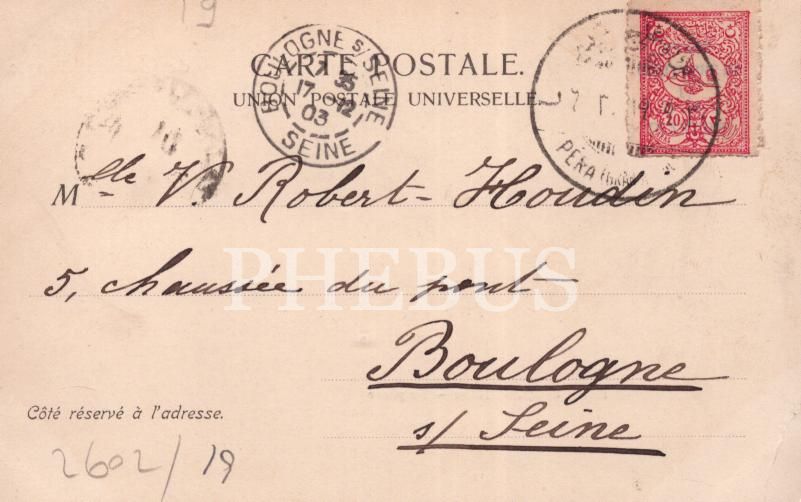 19
CARTE POSTALE.
UNION POSTALE UNIVERSELLE
BOULOGNE S/SEINE
17 12
03
SEINE
PERA
20
Mlle V Robert-Houdin
5, chaussée du pont
Boulogne
s/ Seine
Côté réservé à l'adresse.
2602/19
PHEBUS